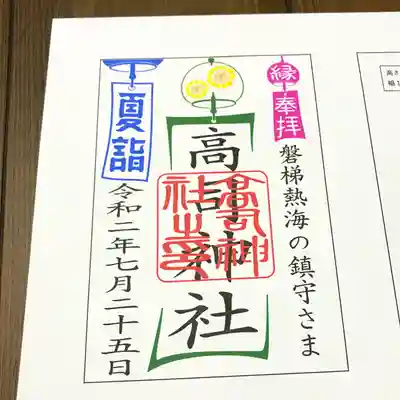 縁
奉拝
磐梯熱海の鎮守さま
高司神社
高司神
社之印
夏詣
令和二年七月二十五日
高さ
幅1